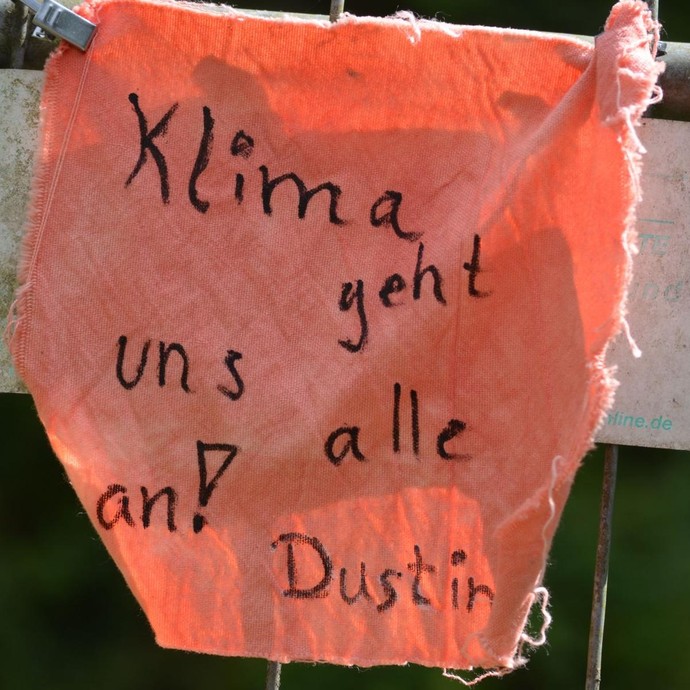 Klima
geht
uns
alle
an!
Dustin
nline.de